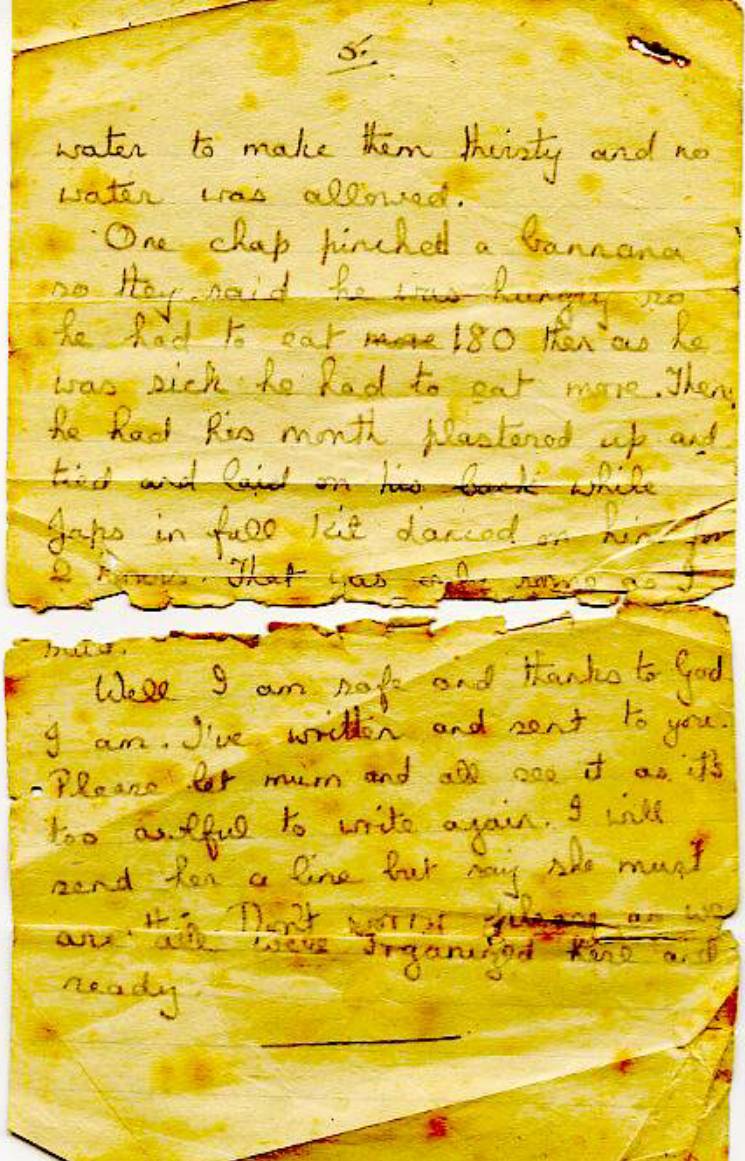 5.
water to make them thirsty and no
water was allowed.
One chap pinched a bannana
so they said he was hungry so
he had to eat more 180 then as he
was sick he had to eat more. Then
he had his mouth plastered up and
tied and laid on his back while
Japs in full kit danced on him for
2 hours. That was only some as I

Well I am safe and thanks to God
I am. I've written and sent to you.
Please let mum and all see it as it's
too awlful to write again. I will
send her a line but say she must
Don't worry please as we
are all organized here and
ready.